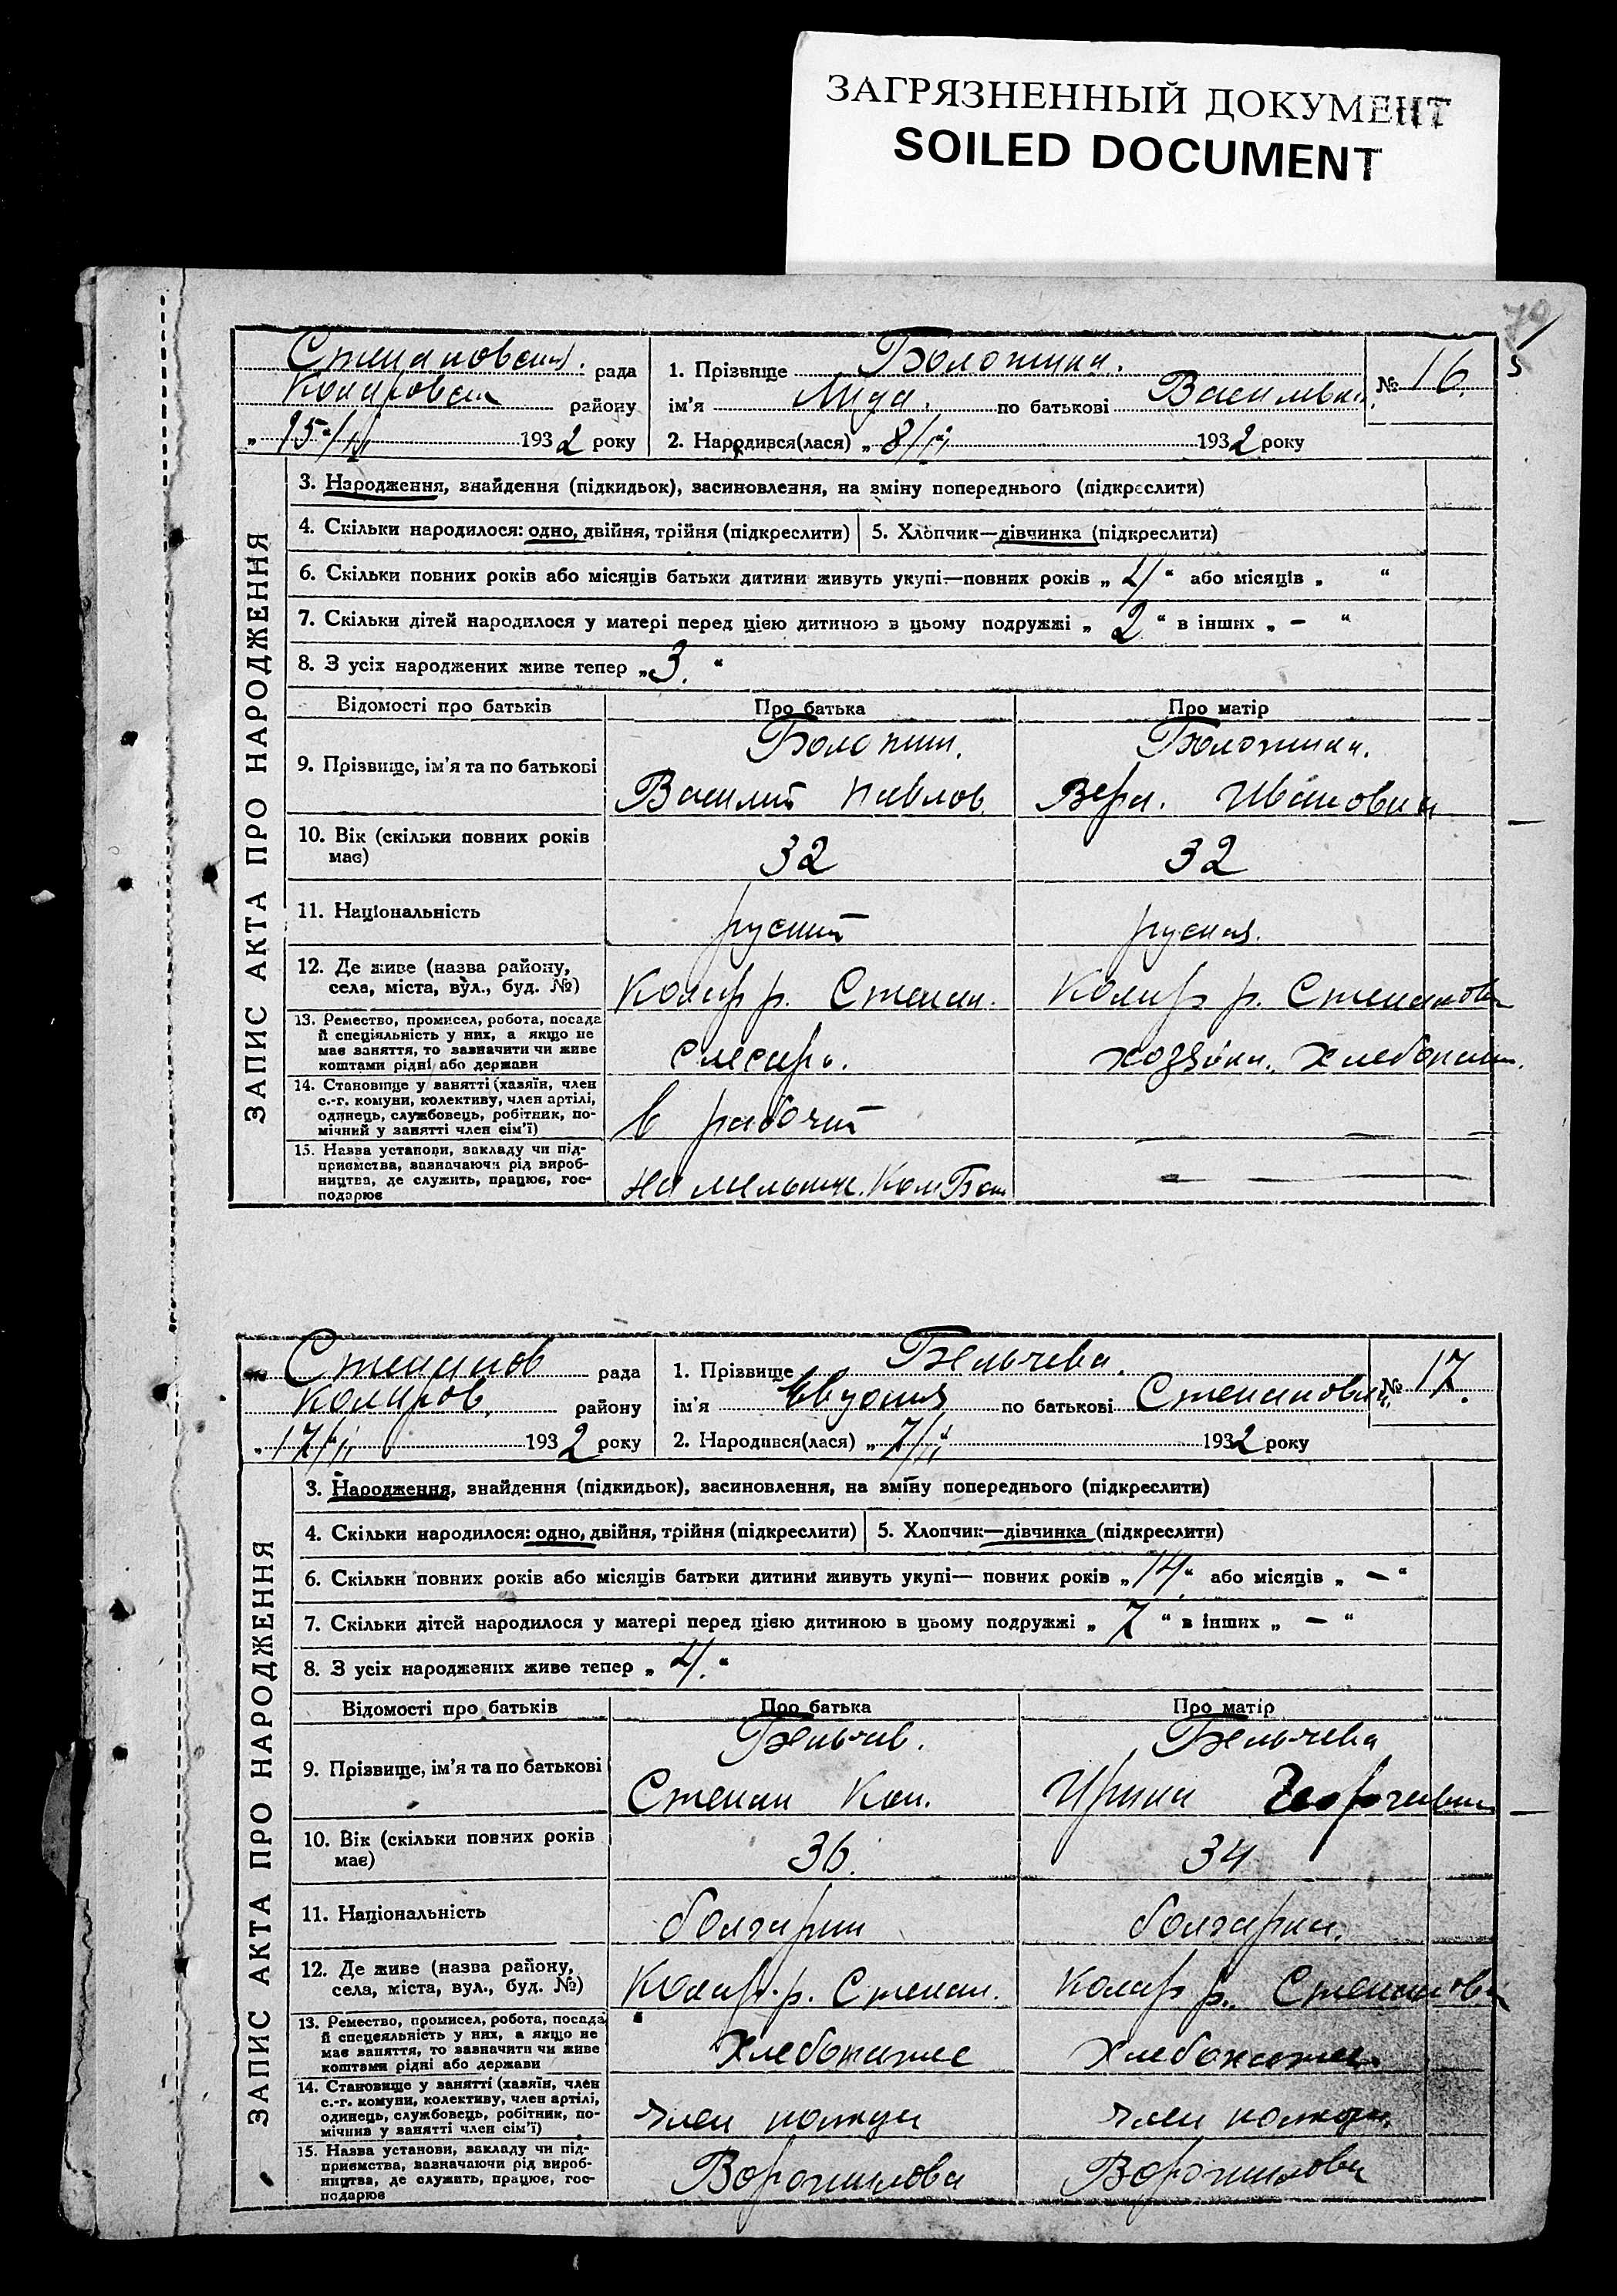 ЗАГРЯЗНЕННЫЙ ДОКУМЕНТ
SOILED DOCUMENT
рада
району
193 2 року
1. Прізвище
ім'я Лида. по батькові
2. Народився(лася) „ 8/ 1932 року
№ 16.
ЗАПИС АКТА ПРО НАРОДЖЕННЯ
3. Народження, знайдення (підкидьок), засиновлення, на зміну попереднього (підкреслити)
4. Скільки народилося: одно, двійня, трійня (підкреслити)
5. Хлопчик—дівчинка (підкреслити)
6. Скільки повних років або місяців батьки дитини живуть укупі—повних років „ 4 “ або місяців „ “
7. Скільки дітей народилося у матері перед цією дитиною в цьому подружжі „ 2 “ в інших „ – “
8. З усіх народжених живе тепер „ 3. “
Відомості про батьків
Про батька
Про матір
9. Прізвище, ім'я та по батькові
Василий Павлов.
Вера. Ивановна
10. Вік (скільки повних років
має)
32
32
11. Національність
руский
руская.
12. Де живе (назва району,
села, міста, вул., буд. №)
Колар р. Степан.
Колар р. Степановк
13. Ремество, промисел, робота, посада
й спеціяльність у них, а якщо не
має заняття, то зазначити чи живе
коштами рідні або держави
слесарь.
14. Становище у занятті (хазяїн, член
с.-г. комуни, колективу, член артілі,
одинець, службовець, робітник, по-
мічний у занятті член сім'ї)
рабочий
—
15. Назва установи, закладу чи під-
приємства, зазначаючи рід вироб-
ництва, де служить, працює, гос-
подарює
на
— —
Степанов рада
Коларов. району
„ 17/II 193 2 року
1. Прізвище Бельчева.
ім'я Евдокия по батькові Степановна.
2. Народився(лася) „ 7/II 1932 року
№ 17.
ЗАПИС АКТА ПРО НАРОДЖЕННЯ
3. Народження, знайдення (підкидьок), засиновлення, на зміну попереднього (підкреслити)
4. Скільки народилося: одно, двійня, трійня (підкреслити)
5. Хлопчик—дівчинка (підкреслити)
6. Скільки повних років або місяців батьки дитини живуть укупі— повних років „ 14. “ або місяців „ – “
7. Скільки дітей народилося у матері перед цією дитиною в цьому подружжі „ 7 “ в інших „ – “
8. З усіх народжених живе тепер „ 4. “
Відомості про батьків
Про батька
Про матір
9. Прізвище, ім'я та по батькові
Бельчев.
Бельчева
Степан
Ирина
10. Вік (скільки повних років
має)
36.
34
11. Національність
болгарин
12. Де живе (назва району,
села, міста, вул., буд. №)
Колар. р. Степан.
Колар р. Степановк
13. Ремество, промисел, робота, посада
й спецеяльність у них, а якщо не
має заняття, то зазначити чи живе
коштами рідні або держави
14. Становище у занятті (хазяїн, член
с.-г. комуни, колективу, член артілі,
одинець, службовець, робітник, по-
мічнив у занятті член сім'ї)
член
член
15. Назва установи, закладу чи під-
приємства, зазначаючи рід вироб-
ництва, де служить, працює, гос-
подарює
Ворошилова
Ворошилова